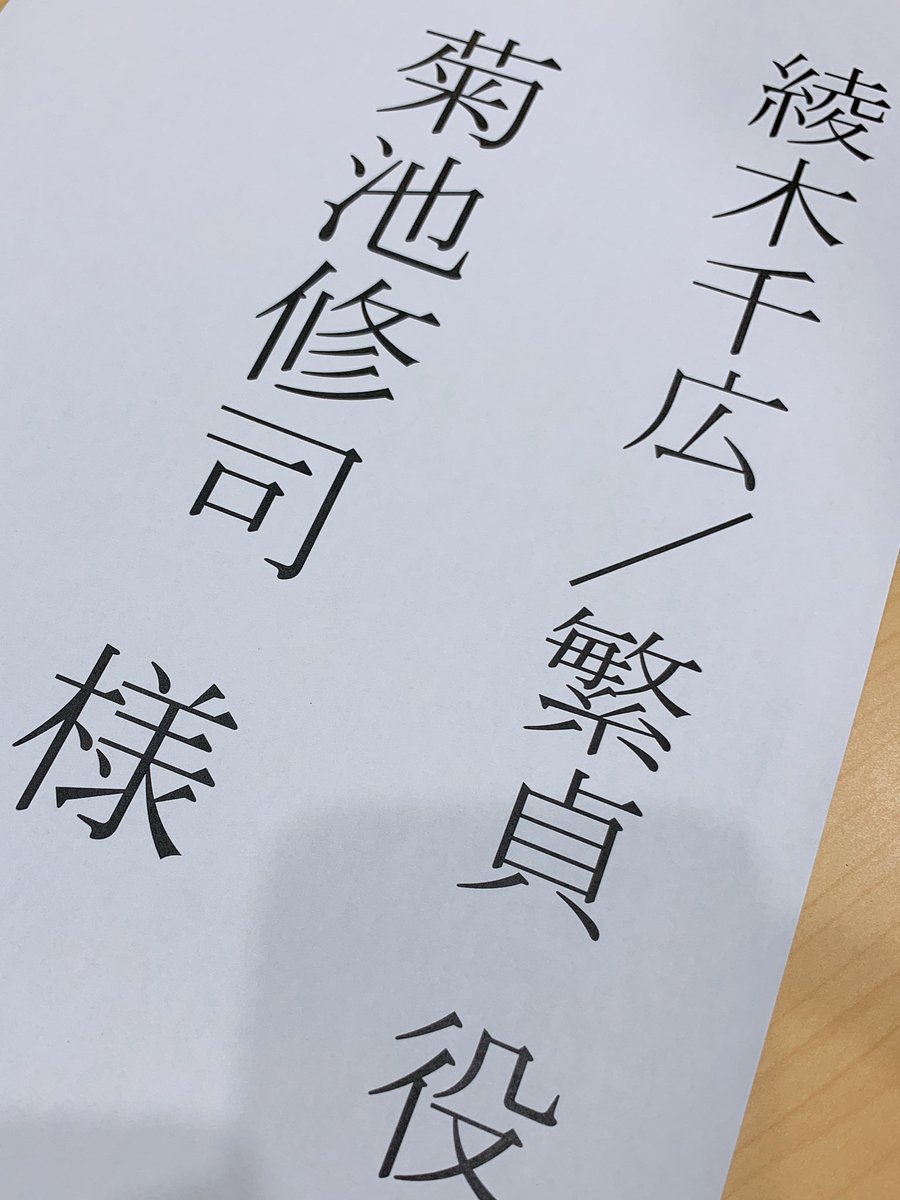 綾木千広／繁貞 役
菊池修司 様